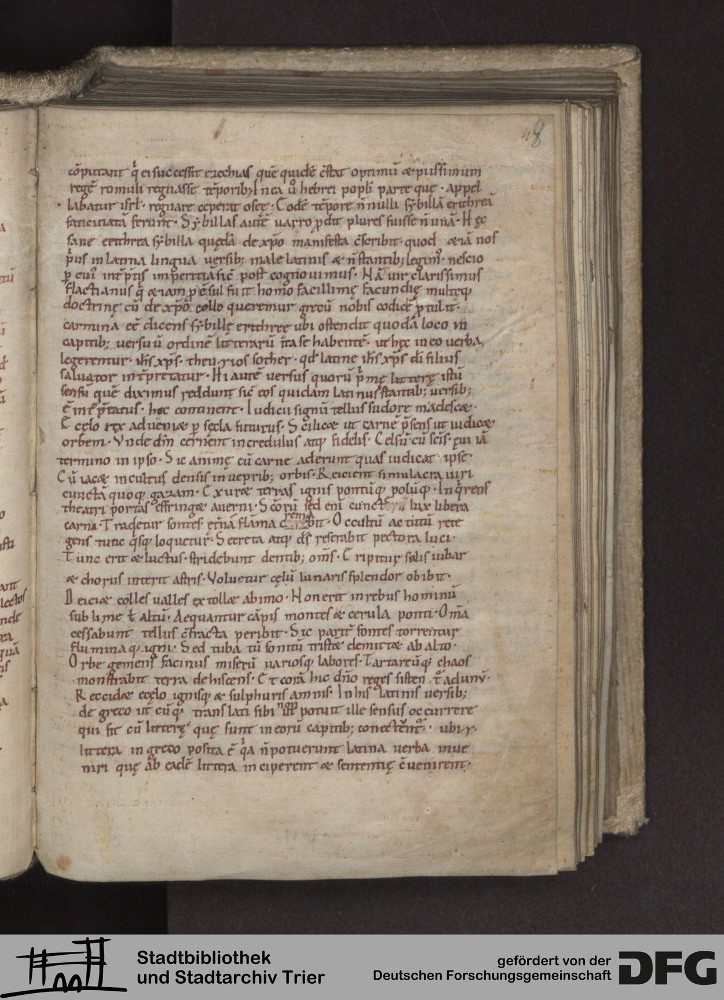 48
cōputant q̄ ei successit ezechias quē quidē cstat optimū & piissimum
regē romuli regnasse tēporib; In ea ū hebrei popli parte quę · appel
labatur isrl · regnare ceperat osee · Eodē tēpore n̄nulli sybillā erithreā
faticinatā ferunt · Sybillas autē uarro pdit plures fuisse n̄ unā · Hęc
sane erithrea sybilla quędā de xpo manifesta cscribit · quod &iā nos
p̄us in latina lingua versib; male latinis & n̄ stantib; legim̕ · nescio
p cui̕ intp̄tis imperitiā sic post cognouimus · Nā uir clarissimus
flactianus q̄ &iam pcsul fuit homo facillimę facundię multęq;
doctrinę cū de xpo collo queremur grecū nobis codicē p̄tulit ·
carmina eē dicens sybillę erithreę ubi ostendit quodā loco in
capitib; versuū ordinē litterarū ita se habentē · ut hęc in eo verba
legerentur · ihs xps · theu yios sother · qd latine ihs xps di filius
saluator intp̄tatur · Hi autē versus quorū p̄mę litterę istū
sensū quē diximus reddunt sic eos quidam latinis stantib; versib;
ē intp̄tatus · hoc continent · Iudicii signū tellus sudore madesc& ·
E cęlo rex adueni& p sęcla futurus · Scilic& ut carnē p̄sens ut iudic&
orbem · Vnde dm̄ cernent incredulus atq; fidelis · Celsū cū scīs · eui iā
termino in ipso · Sic animę cū carne aderunt quas iudicat ipse ·
Cū iac& incultus densis in ueprib; orbis · Reicient simulacra uiri
cunctā quoq; gazam · Exur& terras ignis pontūq; polūq; · Inq̄rens
theatri portas effringę auerni · Scorū sed eni cunctę lux libera
carni · Tradetur sontes etnā flāma cremabit · Occultū actūtū rete
gens tunc q̄sq; loquetur · Secreta atq; ds reserabit pectora luci ·
Tunc erit & luctus · stridebunt dentib; oms · Eripitur solis iubar
& chorus interit astris · Voluetur cęlū lunaris splendor obibit ·
Deici& colles valles extoll& ab imo · Non erit in rebus hominū
sublime t̄ altū · Aequantur cāpis montes & cerula ponti · Om̄a
cessabunt tellus cfracta peribit · Sic parit̄ fontes torrentur
fluminaq; igni · Sed tuba tū sonitū tristē demitt& ab alto ·
Orbe gemens facinus miserū variosq; labores · Tartareūq; chaos
monstrabit terra dehiscens · Et corā hic dn̄o reges sistent̄ ad unū ·
Reccid& cęlo ignisq; & sulphuris amnis · In his latinis versib;
de greco ut cūq; translatis ibi n̄ potuit ille sensus occurrere
qui fit cū litterę quę sunt in eorū capitib; conectent̄ · ubi y ·
littera in greco posita ē q̄a n̄ potuerunt latina verba inue
niri quę ab eadē littera inciperent & sententię cuenirent ·
Stadtbibliothek
und Stadtarchiv Trier
gefördert von der
Deutschen Forschungsgemeinschaft
DFG